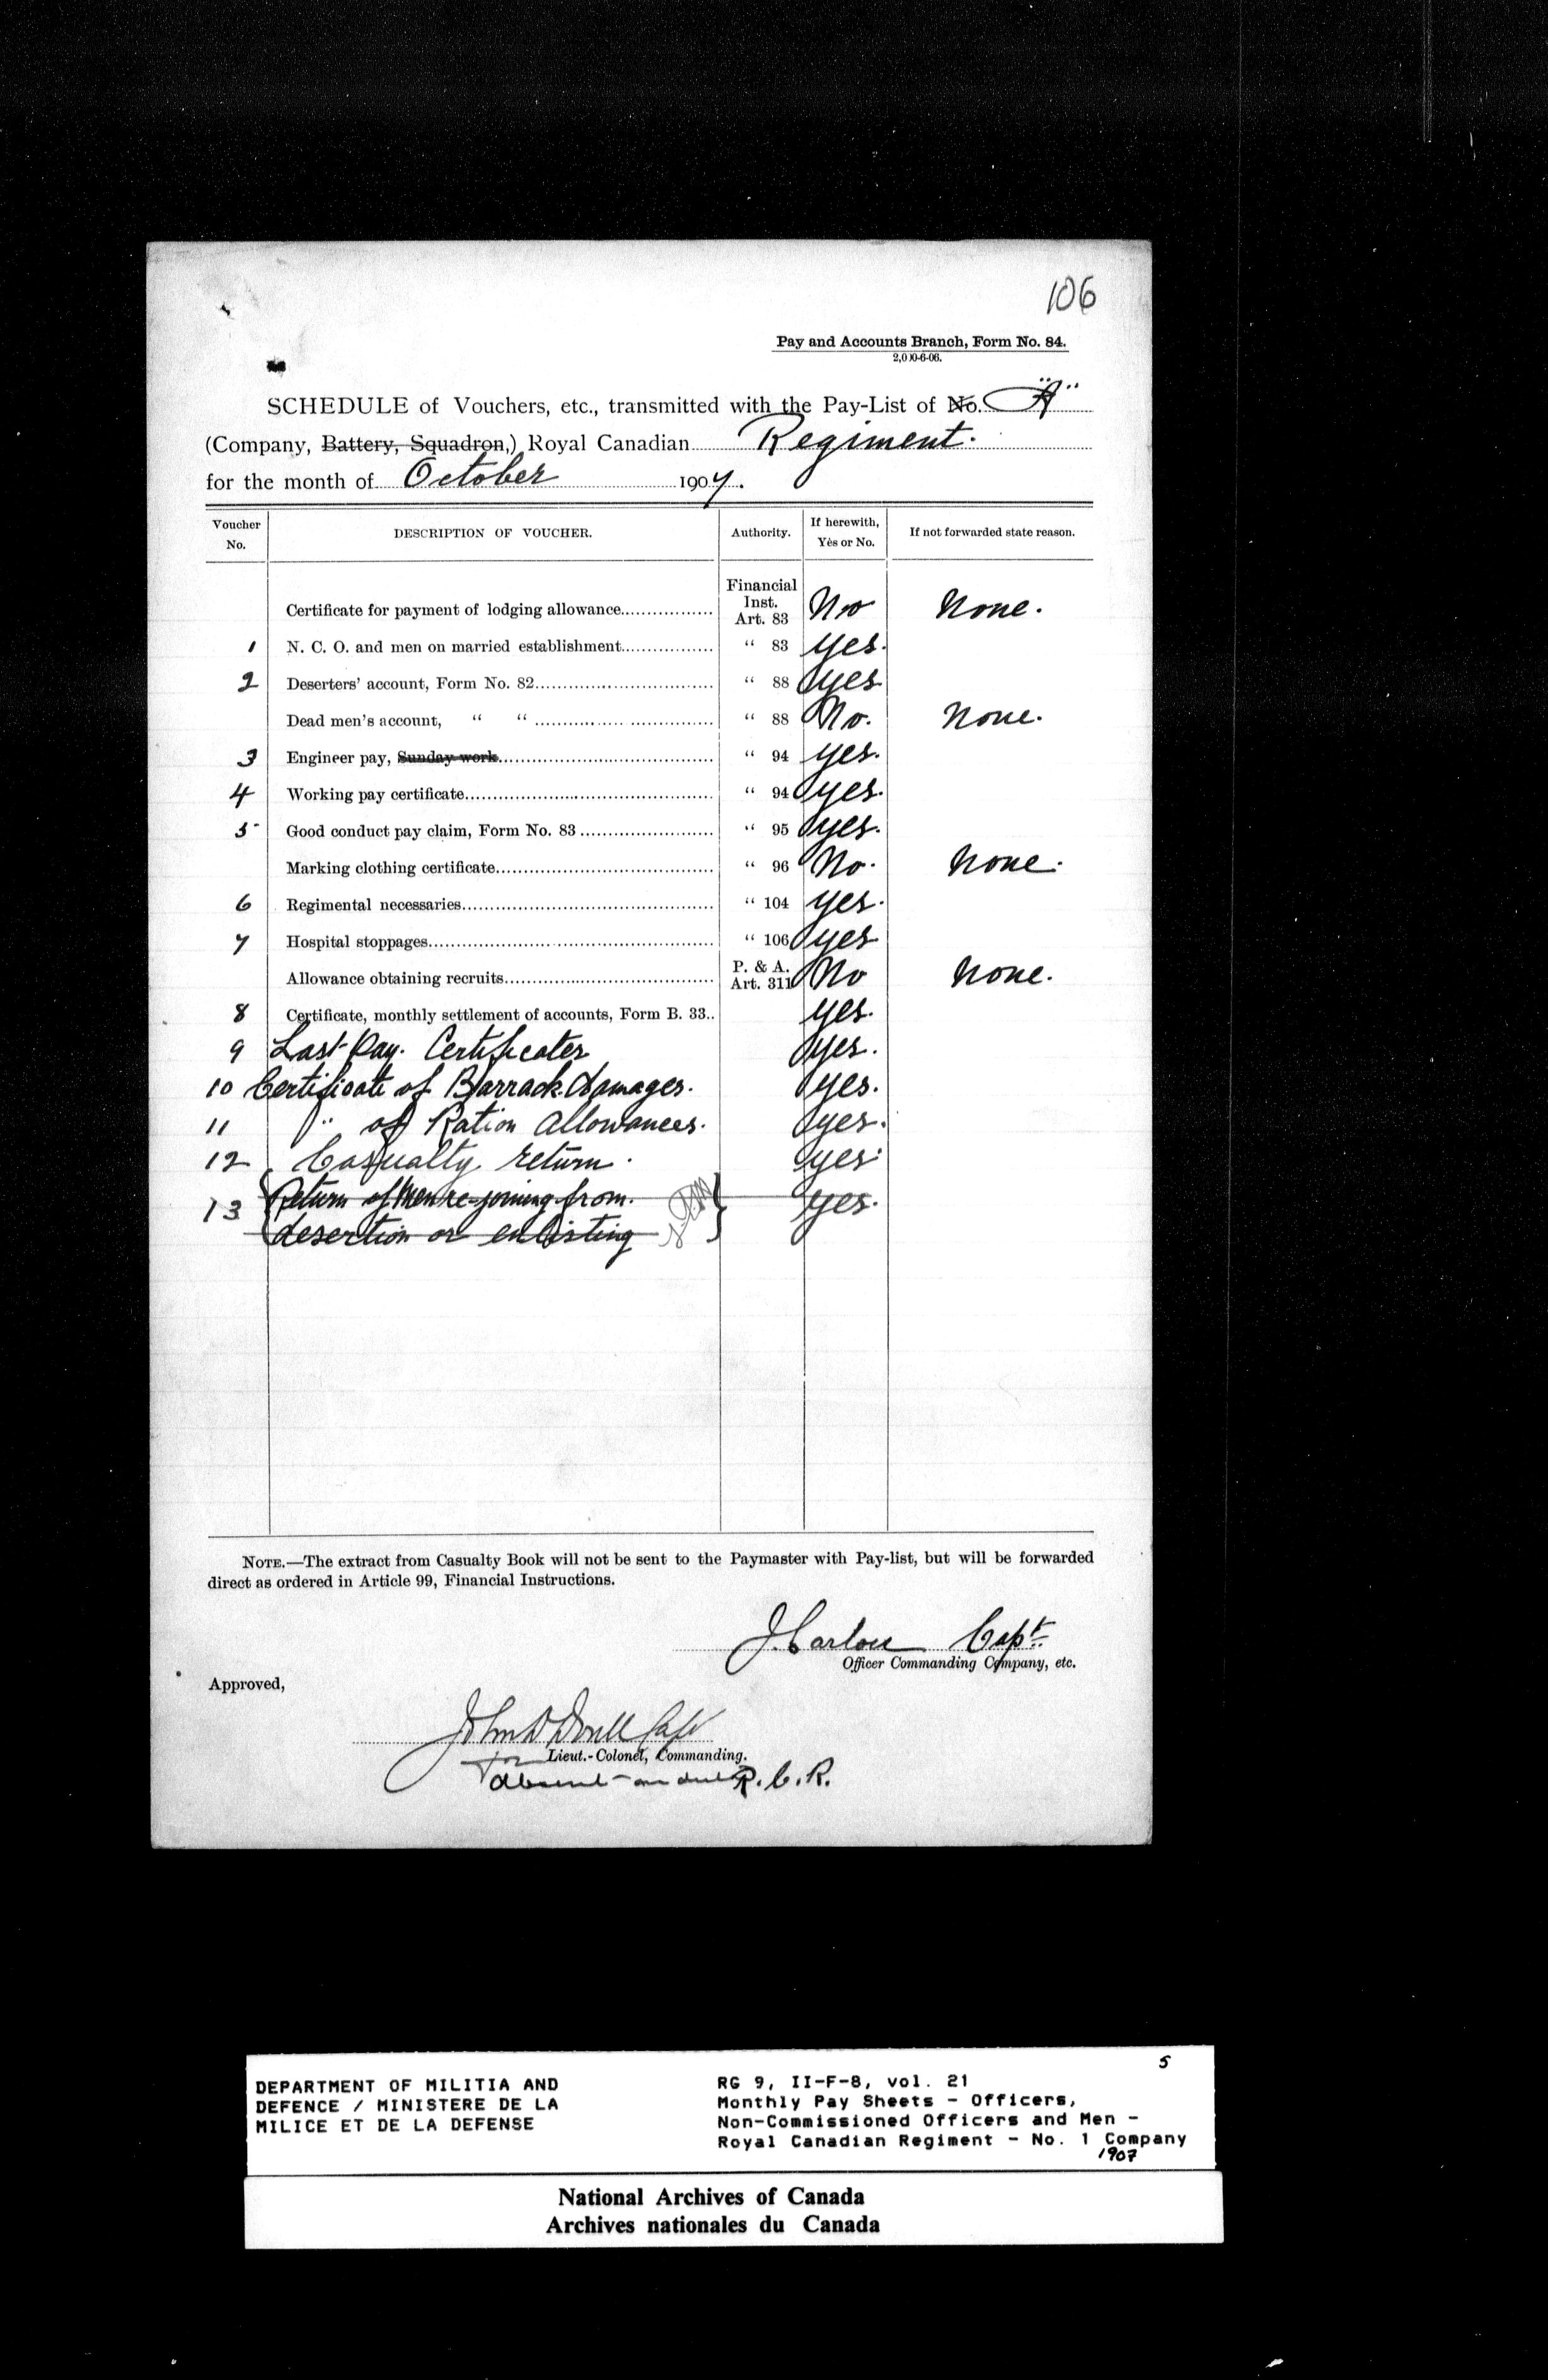 106
Pay and Accounts Branch, Form No. 84.
2,000-6-06.
SCHEDULE of Vouchers, etc., transmitted with the Pay-List of No. "A"
(Company, Battery, Squadron,) Royal Canadian Regiment.
for the month of October 1907.
Voucher No. DESCRIPTION OF VOUCHER. Authority. If herewith, Yes or No. If not forwarded state reason.
Certificate for payment of lodging allowance Financial Inst. Art. 83 No None.
1 N. C. O. and men on married establishment " 83 yes.
2 Deserters' account, Form No. 82 " 88 yes
Dead men's account, " " " 88 No. None.
3 Engineer pay, Sunday work " 94 yes.
4 Working pay certificate " 94 yes.
5 Good conduct pay claim, Form No. 83 " 95 yes.
Marking clothing certificate " 96 No. None.
6 Regimental necessaries " 104 yes.
7 Hospital stoppages " 106 yes
Allowance obtaining recruits P. & A. Art. 311 No None.
8 Certificate, monthly settlement of accounts, Form B. 33.. yes.
9 Last Pay. Certificates yes.
10 Certificate of Barrack damages. yes.
11 " of Ration Allowances. yes.
12 Casualty return. yes
13 Return of Men re-joining from. yes.
desertion or enlisting
NOTE.—The extract from Casualty Book will not be sent to the Paymaster with Pay-list, but will be forwarded
direct as ordered in Article 99, Financial Instructions.
J. Carlou Capt.
Officer Commanding Company, etc.
Approved,
John D Doull Capt
for Lieut.-Colonel, Commanding.
absent on R.C.R.
5
DEPARTMENT OF MILITIA AND
DEFENCE / MINISTERE DE LA
MILICE ET DE LA DEFENSE
RG 9, II-F-8, vol. 21
Monthly Pay Sheets - Officers,
Non-Commissioned Officers and Men -
Royal Canadian Regiment - No. 1 Company
1907
National Archives of Canada
Archives nationales du Canada